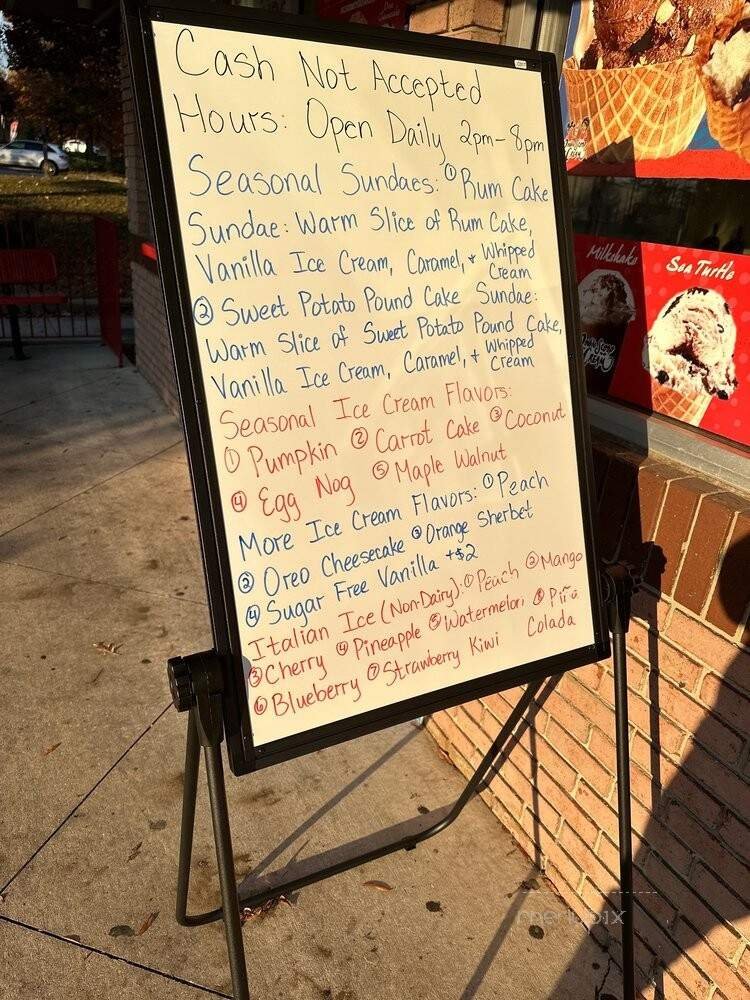 Cash Not Accepted
Hours: Open Daily 2pm-8pm
Seasonal Sundaes: ① Rum Cake
Sundae: Warm Slice of Rum Cake,
Vanilla Ice Cream, Caramel, + Whipped
Cream
② Sweet Potato Pound Cake Sundae:
Warm Slice of Sweet Potato Pound Cake,
Vanilla Ice Cream, Caramel, + Whipped
Cream
Seasonal Ice Cream Flavors:
① Pumpkin ② Carrot Cake ③ Coconut
④ Egg Nog ⑤ Maple Walnut
More Ice Cream Flavors: ① Peach
② Oreo Cheesecake ③ Orange Sherbet
④ Sugar Free Vanilla +$2
Italian Ice (Non-Dairy): ① Peach ② Mango
③ Cherry ④ Pineapple ⑤ Watermelon, ⑧ Piña
Colada
⑥ Blueberry ⑦ Strawberry Kiwi
Milkshake
Sea Turtle
menupix